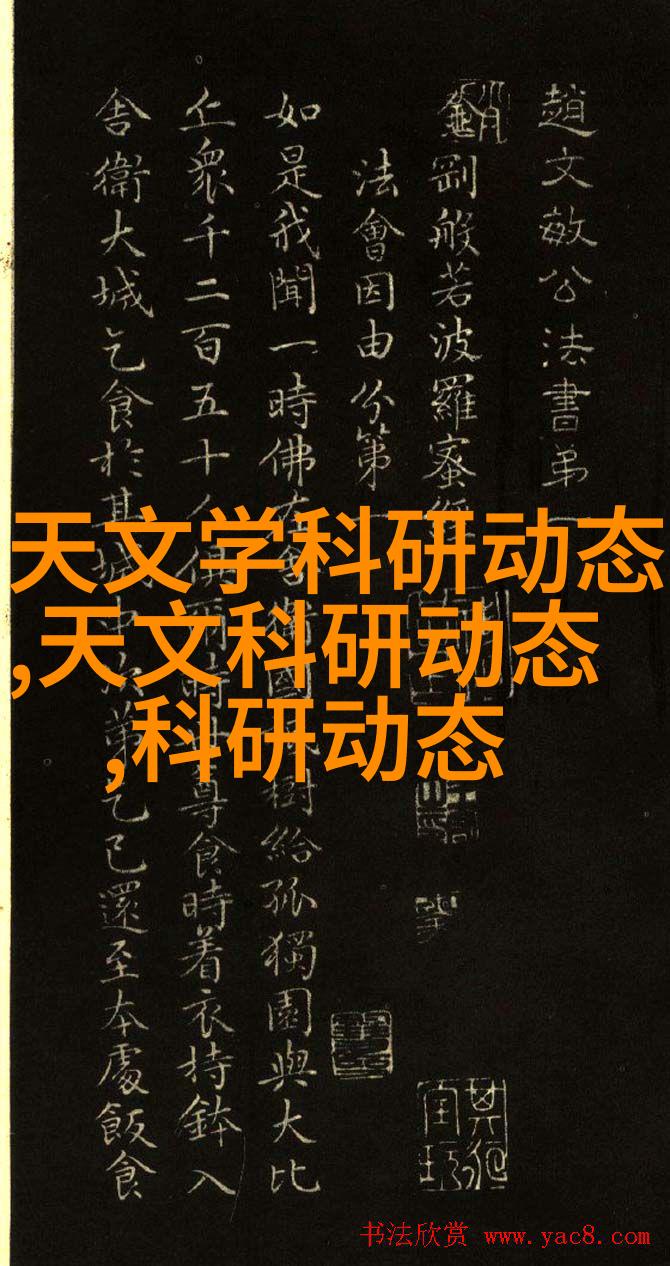 趙文敏公法書弟一
金剛般若波羅蜜經
法會因由分第一
如是我聞一時佛在舍衛國樹給孤獨園與大比
丘衆千二百五十人俱爾時尊食時着衣持鉢入
舍衛大城乞食於其城中次第乞已還至本處飯食
天文学科研动态
,天文科研动态
,科研动态
书法欣赏 www.yac8.com